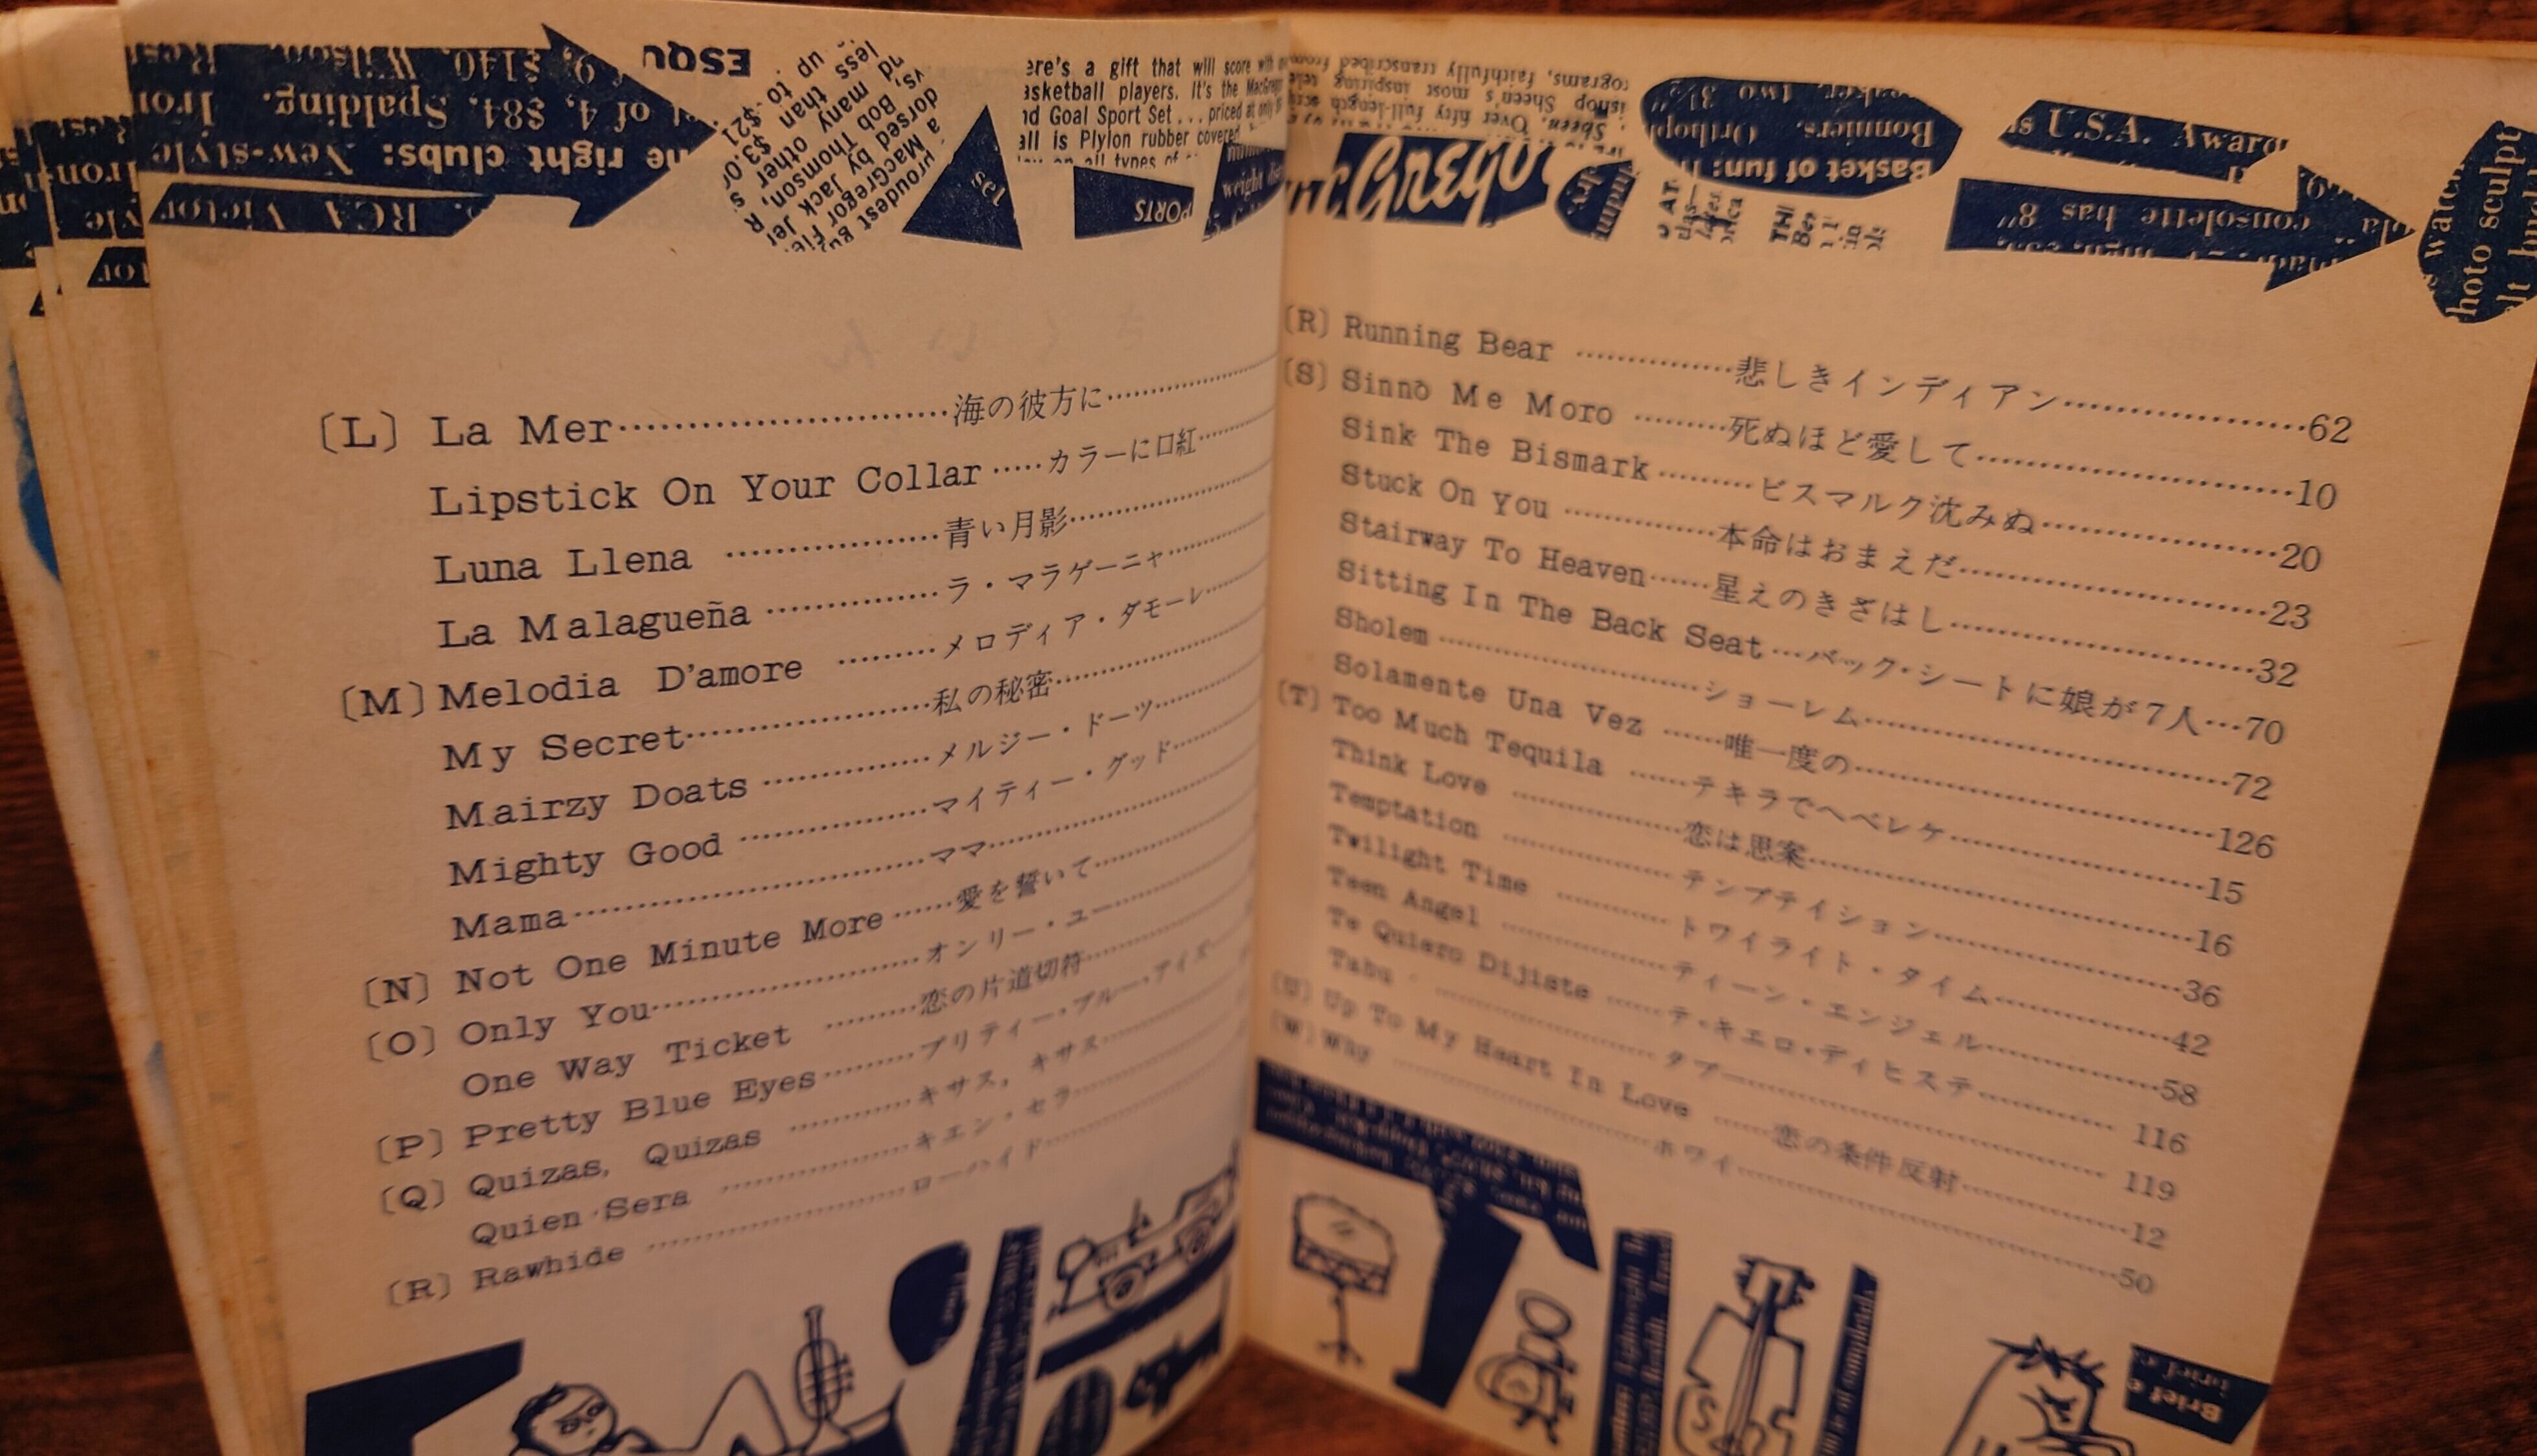 ESQU
of 4, $84, Spalding. Iron
he right clubs: New-style
RCA Victor
ere's a gift that will score with
asketball players. It's the MacGreg
nd Goal Sport Set ... priced at only
all is Plylon rubber covered
PORTS
〔L〕 La Mer……………………海の彼方に…………
Lipstick On Your Collar……カラーに口紅………
Luna Llena ………………青い月影……………
La Malagueña ……………ラ・マラゲーニャ………
〔M〕 Melodia D'amore ………メロディア・ダモーレ……
My Secret……………………私の秘密……………
Mairzy Doats ……………メルジー・ドーツ………
Mighty Good ………………マイティー・グッド………
Mama……………………………ママ…………………
〔N〕 Not One Minute More ……愛を誓いて…………
〔O〕 Only You……………………オンリー・ユー…………
One Way Ticket ………恋の片道切符…………
〔P〕 Pretty Blue Eyes………プリティー・ブルー・アイズ……
〔Q〕 Quizas, Quizas …………キサス, キサス…………
Quien Sera ………………キエン・セラ…………
〔R〕 Rawhide ……………………ローハイド…………
Sheen. Over fifty full-length
Basket of fun:
Bonniers.
's U.S.A. Award
consolette has 8"
〔R〕 Running Bear ……………悲しきインディアン……………………62
〔S〕 Sinnò Me Moro ………死ぬほど愛して…………………………10
Sink The Bismark………ビスマルク沈みぬ……………………20
Stuck On You ……………本命はおまえだ…………………………23
Stairway To Heaven……星えのきざはし…………………………32
Sitting In The Back Seat…バック・シートに娘が7人…70
Sholem……………………ショーレム………………………………72
Solamente Una Vez ……唯一度の………………………………126
〔T〕 Too Much Tequila ……テキラでヘベレケ……………………15
Think Love ……………恋は思案………………………………16
Temptation ……………テンプテイション……………………36
Twilight Time …………トワイライト・タイム…………………42
Teen Angel ……………ティーン・エンジェル…………………58
Te Quiero Dijiste ……テ・キエロ・ディヒステ…………… 116
Tabu ……………………タブー……………………………… 119
〔U〕 Up To My Heart In Love ……恋の条件反射………………12
〔W〕 Why ……………………ホワイ………………………………50